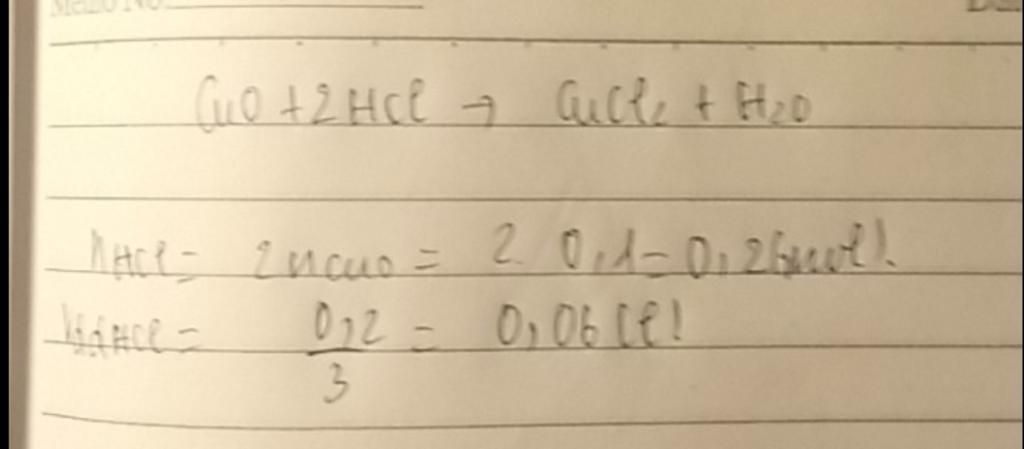 Memo No.
CuO + 2HCl → CuCl₂ + H₂O
nHCl = 2nCuO = 2. 0,1 = 0,2 (mol)
VddHCl = 0,2/3 = 0,06 (l)